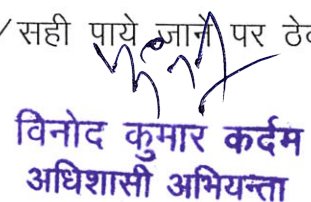 /सही पाये जाने पर
विनोद कुमार कर्दम
अधिशासी अभियन्ता